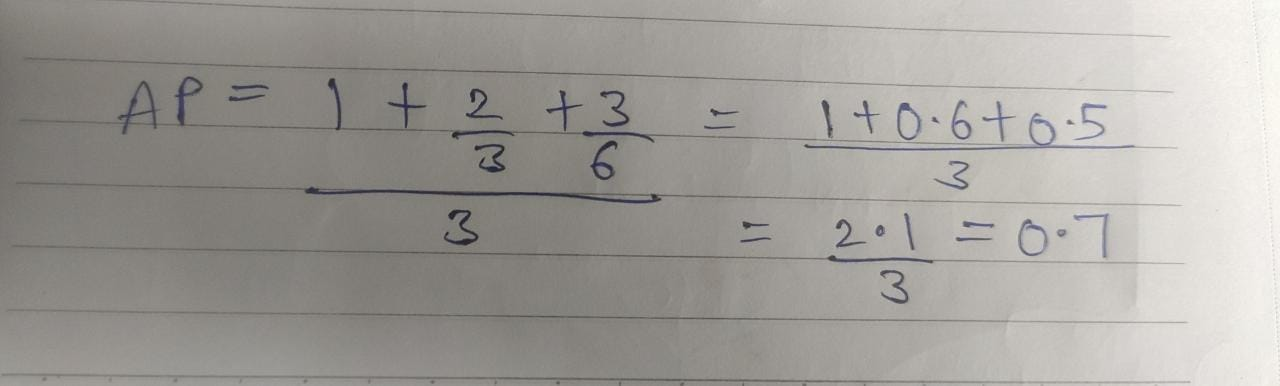 AP = (1 + 2/3 + 3/6)/3 = (1+0.6+0.5)/3
= 2.1/3 = 0.7